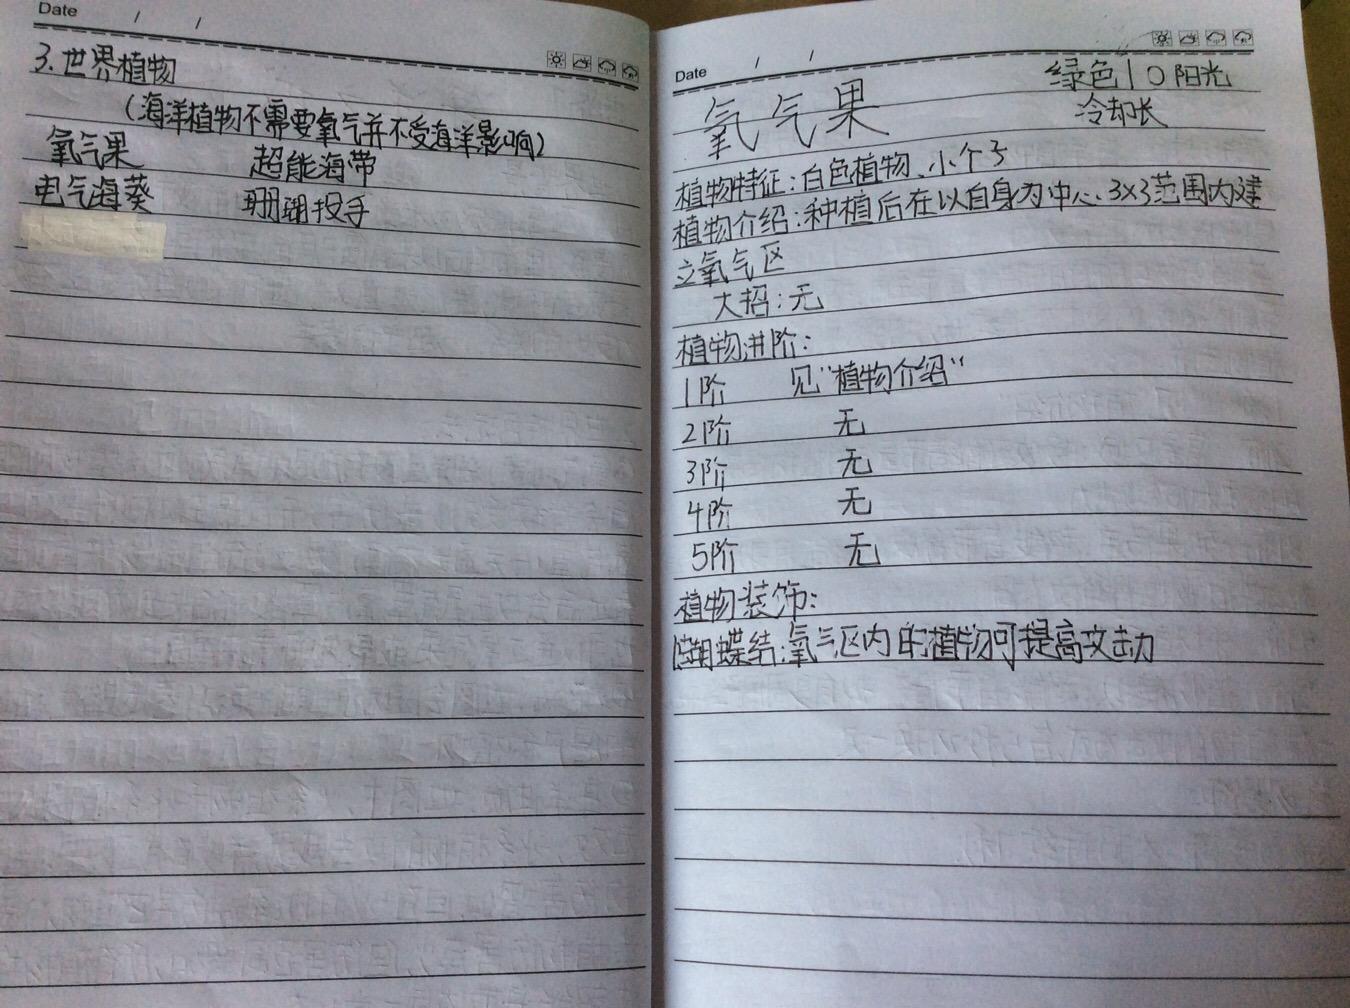 Date / /
3.世界植物
(海洋植物不需要氧气并不受海洋影响)
氧气果 超能海带
电气海葵 珊瑚投手
Date / /
绿色 10阳光
氧气果 冷却长
植物特征:白色植物、小个子
植物介绍:种植后在以自身为中心、3×3范围内建
立氧气区
大招:无
植物进阶:
1阶 见"植物介绍"
2阶 无
3阶 无
4阶 无
5阶 无
植物装饰:
蝴蝶结:氧气区内的植物可提高攻击力